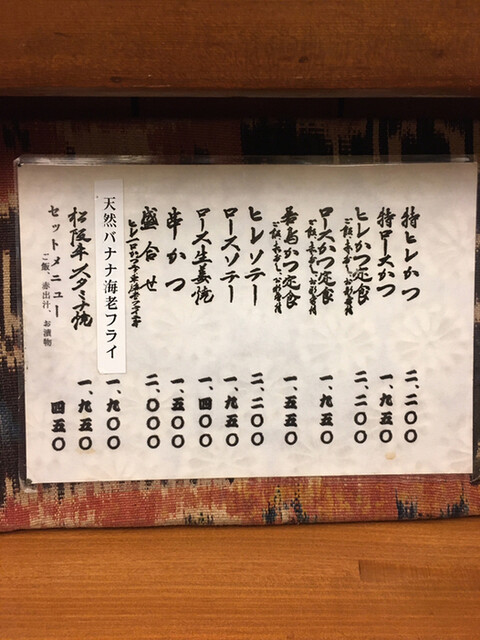 特ヒレかつ 二、二〇〇
特ロースかつ 一、九五〇
ヒレかつ定食 二、二〇〇
ご飯、赤出し、お彩香付
ロースかつ定食 一、九五〇
ご飯、赤出し、お彩香付
若鳥かつ定食 一、五五〇
ご飯、赤出し、お彩香付
ヒレソテー 二、二〇〇
ロースソテー 一、九五〇
ロース生姜焼 一、四〇〇
串かつ 一、五〇〇
盛合せ 二、〇〇〇
天然バナナ海老フライ 一、九〇〇
松阪牛スタミナ焼 一、九五〇
セットメニュー 四五〇
ご飯、赤出汁、お漬物